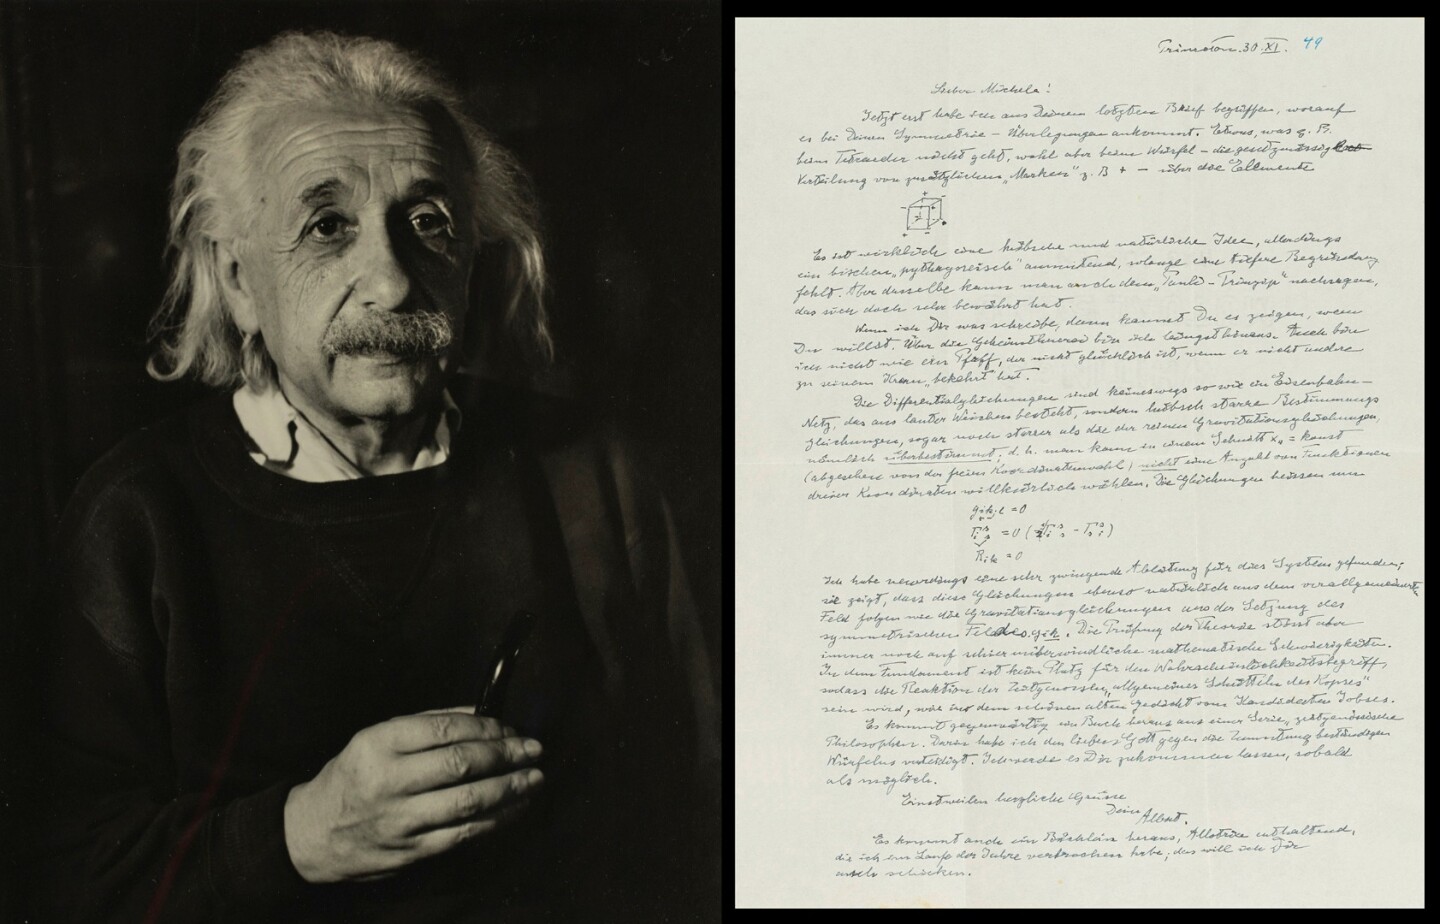 Princeton. 30. XI. 49
Lieber Michele!
Jetzt erst habe ich aus Deinem letzten Brief begriffen, worauf
es bei Deinen Symmetrie-Überlegungen ankommt. Etwas, was z. B.
beim Tetraeder nicht geht, wohl aber beim Würfel – die gesetzmässige
Verteilung von zusätzlichen „Marken" z. B + – über die Elemente
Es ist wirklich eine hübsche und natürliche Idee, allerdings
ein bischen „pythagoreisch" anmutend, solange eine tiefere Begründung
fehlt. Aber dasselbe kann man auch dem „Pauli-Prinzip" nachsagen,
das sich doch sehr bewährt hat.
Wenn ich Dir was schreibe, dann kannst Du es zeigen, wem
Du willst. Über die Geheimtuerei bin ich längst hinaus. Auch bin
ich nicht wie ein Pfaff, der nicht glücklich ist, wenn er nicht andere
zu seinem Kram „bekehrt" hat.
Die Differentialgleichungen sind keineswegs so wie ein Eisenbahn-
Netz, das aus lauter Weichen besteht, sondern hübsch starre Bestimmungs
gleichungen, sogar noch starrer als die der reinen Gravitationsgleichungen,
nämlich überbestimmt; d. h. man kann in einem Schnitt x₄ = konst
(abgesehen von der freien Koordinatenwahl) nicht eine Anzahl von Funktionen
dreier Koordinaten willkürlich wählen. Die Gleichungen heissen nun
gik;l = 0
= 0
Rik = 0
Ich habe neuerdings eine sehr zwingende Ableitung für dies System gefunden;
sie zeigt, dass diese Gleichungen ebenso natürlich aus dem verallgemeinerten
Feld folgen wie die Gravitationsgleichungen aus der Setzung des
symmetrischen Feldes gik. Die Prüfung der Theorie stösst aber
immer noch auf schier unüberwindliche mathematische Schwierigkeiten.
In dem Fundament ist kein Platz für den Wahrscheinlichkeitsbegriff,
sodass die Reaktion der Zeitgenossen „allgemeines Schütteln des Kopfes"
sein wird, wie in dem schönen alten Gedicht vom Kandidaten Jobses.
Es kommt gegenwärtig ein Buch heraus aus einer Serie „zeitgenössische
Philosophen. Darin habe ich den lieben Gott gegen die Zumutung beständigen
Würfelns verteidigt. Ich werde es Dir zukommen lassen, sobald
als möglich.
Einstweilen herzliche Grüsse
Dein Albert.
Es kommt auch ein Büchlein heraus, Allotria enthaltend,
die ich im Laufe der Jahre verbrochen habe; das will ich Dir
auch schicken.